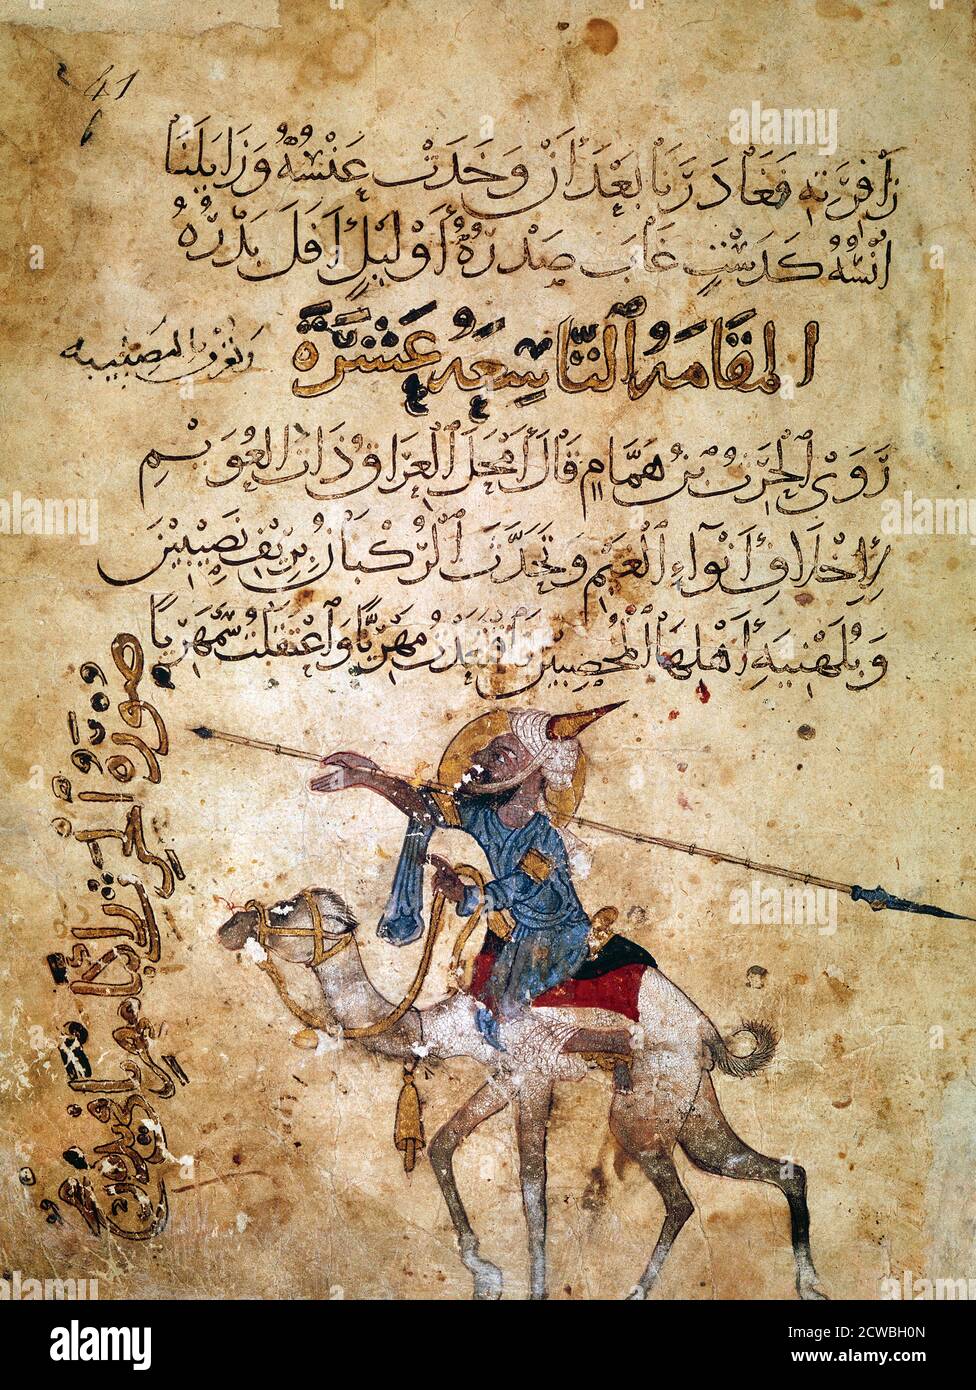 41
6
زَافِرَتِهِ فَغَادَرَنَا بَعْدَ أَنْ وَخَدَتْ عَنْسُهُ وَزَايَلَنَا
أُنْسُهُ كَدَسْتٍ غَابَ صَدْرُهُ أَوْ لَيْلٍ أَفَلَ بَدْرُهُ
المَقَامَةُ التَّاسِعَةُ عَشْرَةَ
وتعرف بالنصيبية
رَوَى الحَرِثُ بْنُ هَمَّامٍ قَالَ أَمْحَلَ العِرَاقُ ذَاتَ العُوَيْمِ
لِإِخْلَافِ أَنْوَاءِ الغَيْمِ وَتَحَدَّثَ الرُّكْبَانُ بِرِيْفِ نَصِيبِيْنَ
وَبُلَهْنِيَةِ أَهْلِهَا المُخْصِبِيْنَ فَاقْتَعَدْتُ مَهْرِيًّا وَاعْتَقَلْتُ سَمْهَرِيًّا
صورة الحرث راكبا مهريا
alamy
Image ID: 2CWBH0N
www.alamy.com